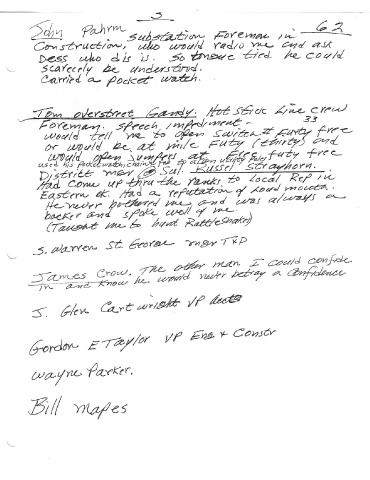 3
62
John Pahrm substation Foreman in
Construction, who would radio me and ask
Dess who dis is. So tongue tied he could
scarcely be understood.
Carried a pocket watch.
Tom overstreet Gandy. Hot stick Line crew
Foreman, speech impediment -
would tell me to open switch # Futy free
33
or would be at mile Futy (thirty) and
would open jumpers at Futy free
used his pocket watch chain
District mgr @ Sul. Russel Strayhorn.
Had come up thru the ranks to Local Rep in
Eastern OK. Had a reputation of loud mouth.
He never bothered me, and was always a
backer and spoke well of me
(Taught me to hunt Rattlesnakes)
S. Warren St. George mgr T&D
James Crow. The other man I could confide
in and know he would never betray a confidence
J. Glen Cartwright VP
Gordon E Taylor VP Eng & Constr
Wayne Parker.
Bill Mapes